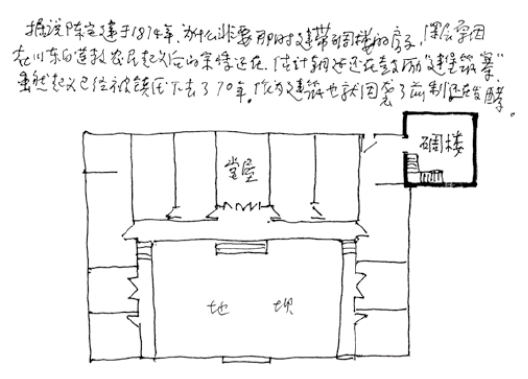 据说陈宅建于1874年，为什么非要那时建带碉楼的房子，深层原因
在川东白莲教农民起义后的余悸还在，估计朝廷还在鼓励“建堡筑寨”
虽然起义已经被镇压下去了70年。作为建筑也就因袭了前制还在发酵。
碉楼
堂屋
地 坝